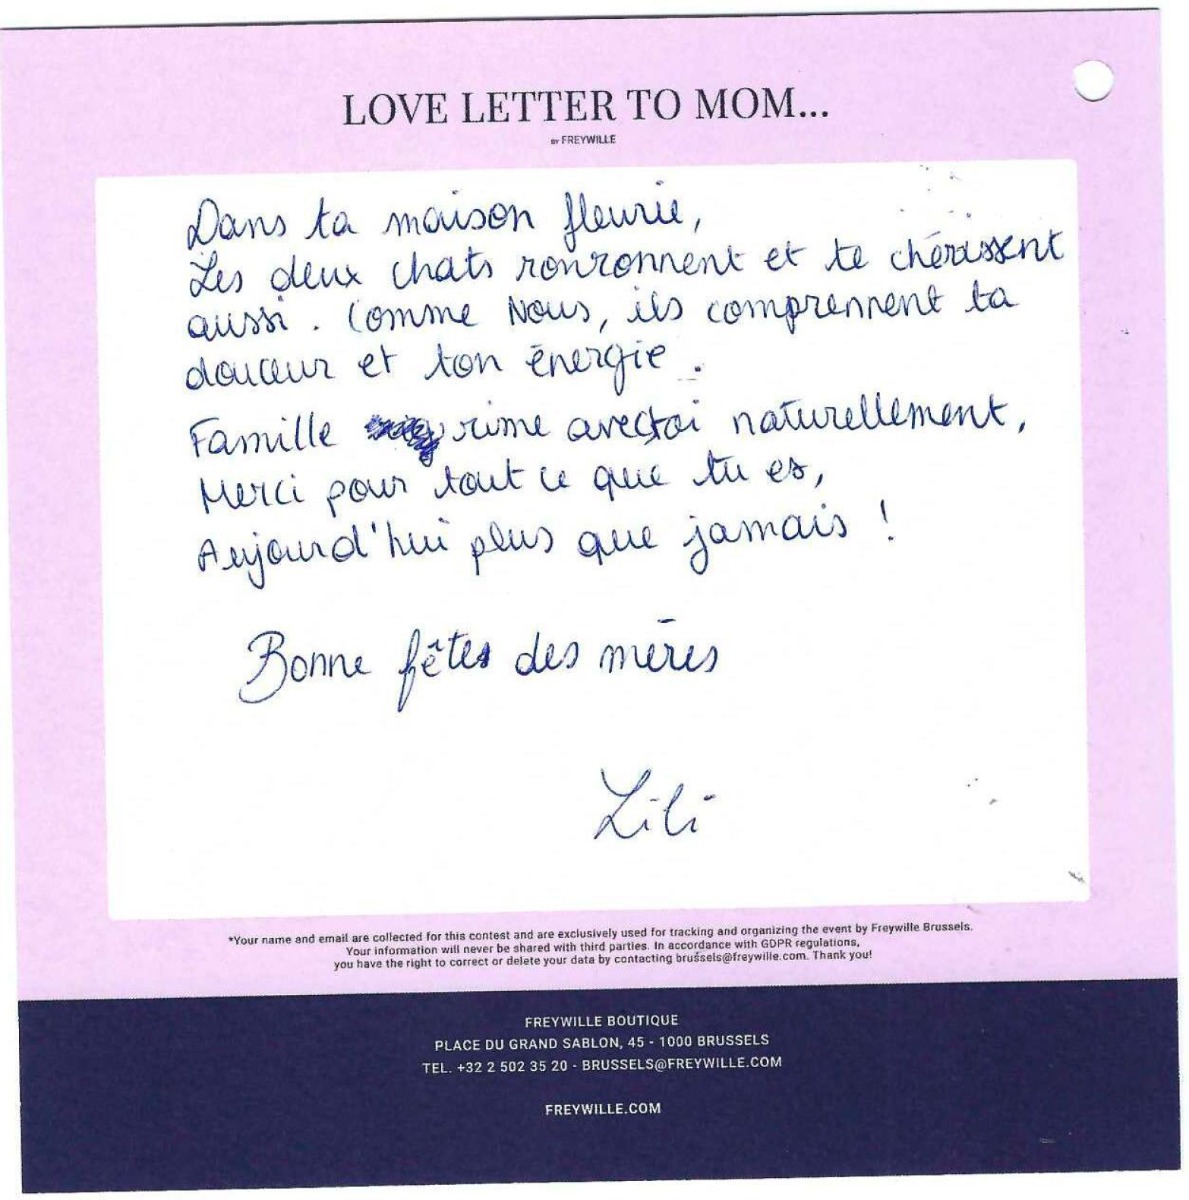 LOVE LETTER TO MOM...
BY FREYWILLE
Dans ta maison fleurie,
Les deux chats ronronnent et te chérissent
aussi. Comme Nous, ils comprennent ta
douceur et ton énergie.
Famille rime avec toi naturellement,
Merci pour tout ce que tu es,
Aujourd'hui plus que jamais !
Bonne fêtes des mères
Lili
*Your name and email are collected for this contest and are exclusively used for tracking and organizing the event by Freywille Brussels.
Your information will never be shared with third parties. In accordance with GDPR regulations,
you have the right to correct or delete your data by contacting brussels@freywille.com. Thank you!
FREYWILLE BOUTIQUE
PLACE DU GRAND SABLON, 45 - 1000 BRUSSELS
TEL. +32 2 502 35 20 - BRUSSELS@FREYWILLE.COM
FREYWILLE.COM